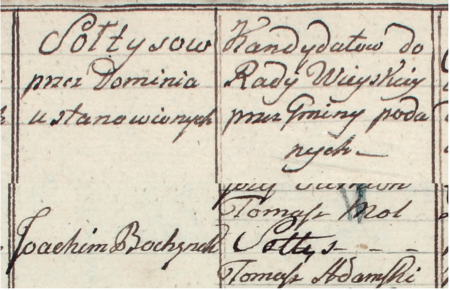 Sołtysow
przez Dominia
ustanowionych
Kandydatow do
Rady Wieyskiey
przez Gminy poda
nych
Tomasz Mol
Joachim
Sołtys
Tomasz Adamski